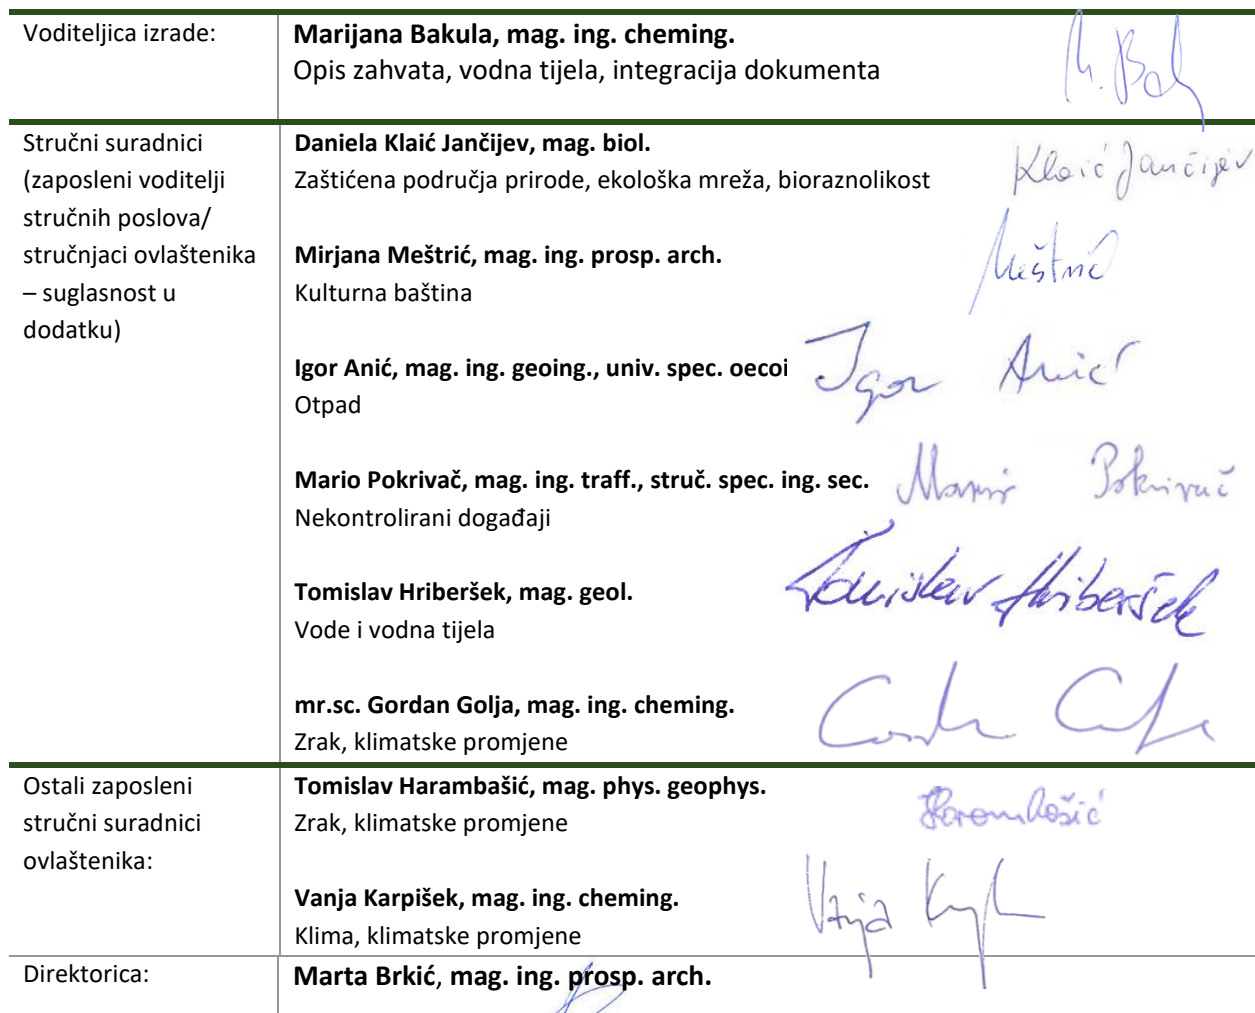 Voditeljica izrade:
Marijana Bakula, mag. ing. cheming.
Opis zahvata, vodna tijela, integracija dokumenta
M. Bak
Stručni suradnici
(zaposleni voditelji
stručnih poslova/
stručnjaci ovlaštenika
– suglasnost u
dodatku)
Daniela Klaić Jančijev, mag. biol.
Zaštićena područja prirode, ekološka mreža, bioraznolikost
Klaić Jančijev
Mirjana Meštrić, mag. ing. prosp. arch.
Kulturna baština
Meštrić
Igor Anić, mag. ing. geoing., univ. spec. oecoi
Otpad
Igor Anić
Mario Pokrivač, mag. ing. traff., struč. spec. ing. sec.
Nekontrolirani događaji
Mario Pokrivač
Tomislav Hriberšek, mag. geol.
Vode i vodna tijela
Tomislav Hriberšek
mr.sc. Gordan Golja, mag. ing. cheming.
Zrak, klimatske promjene
Ostali zaposleni
stručni suradnici
ovlaštenika:
Tomislav Harambašić, mag. phys. geophys.
Zrak, klimatske promjene
Harambašić
Vanja Karpišek, mag. ing. cheming.
Klima, klimatske promjene
Vanja
Direktorica:
Marta Brkić, mag. ing. prosp. arch.